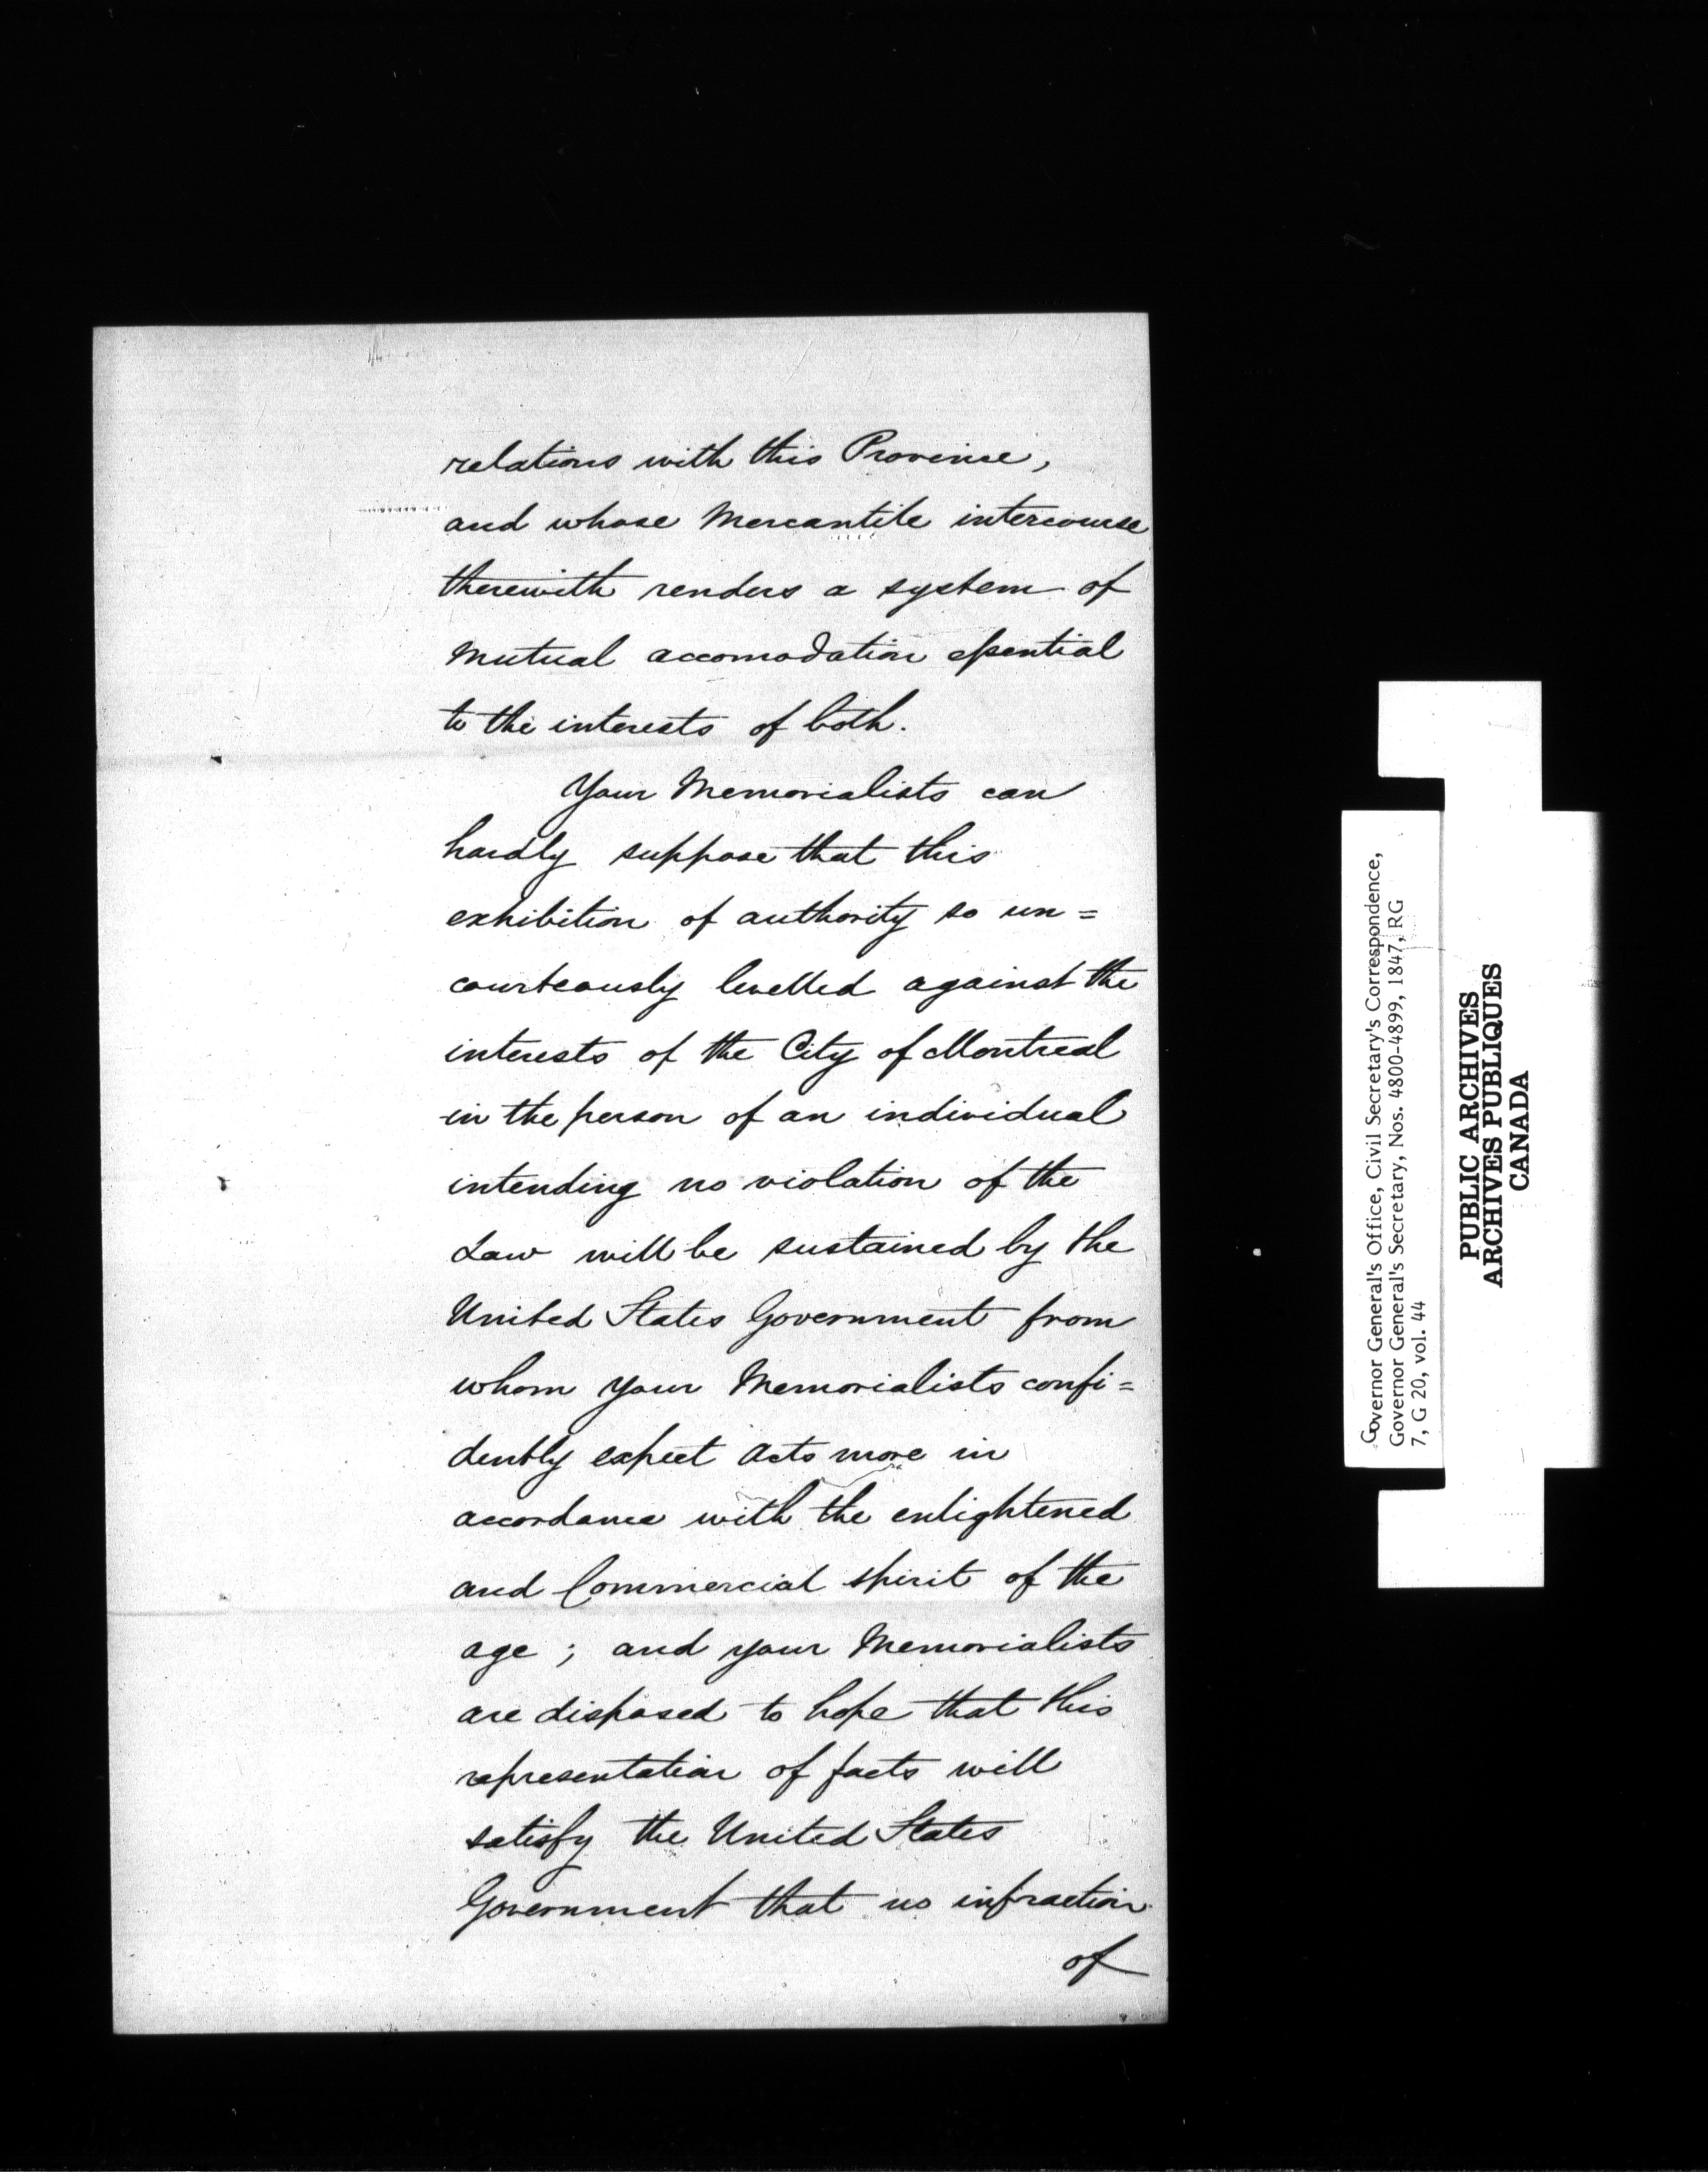 relations with this Province,
and whose Mercantile intercourse
therewith renders a system of
Mutual accomodation essential
to the interests of both.
Your Memorialists can
hardly suppose that this
exhibition of authority so un=
courteously levelled against the
interests of the City of Montreal
in the person of an individual
intending no violation of the
Law will be sustained by the
United States Government from
whom your Memorialists confi=
dently expect acts more in
accordance with the enlightened
and Commercial spirit of the
age ; and your Memorialists
are disposed to hope that this
representation of facts will
satisfy the United States
Government that no infraction
of
Governor General's Office, Civil Secretary's Correspondence,
Governor General's Secretary, Nos. 4800-4899, 1847, RG
7, G 20, vol. 44
PUBLIC ARCHIVES
ARCHIVES PUBLIQUES
CANADA